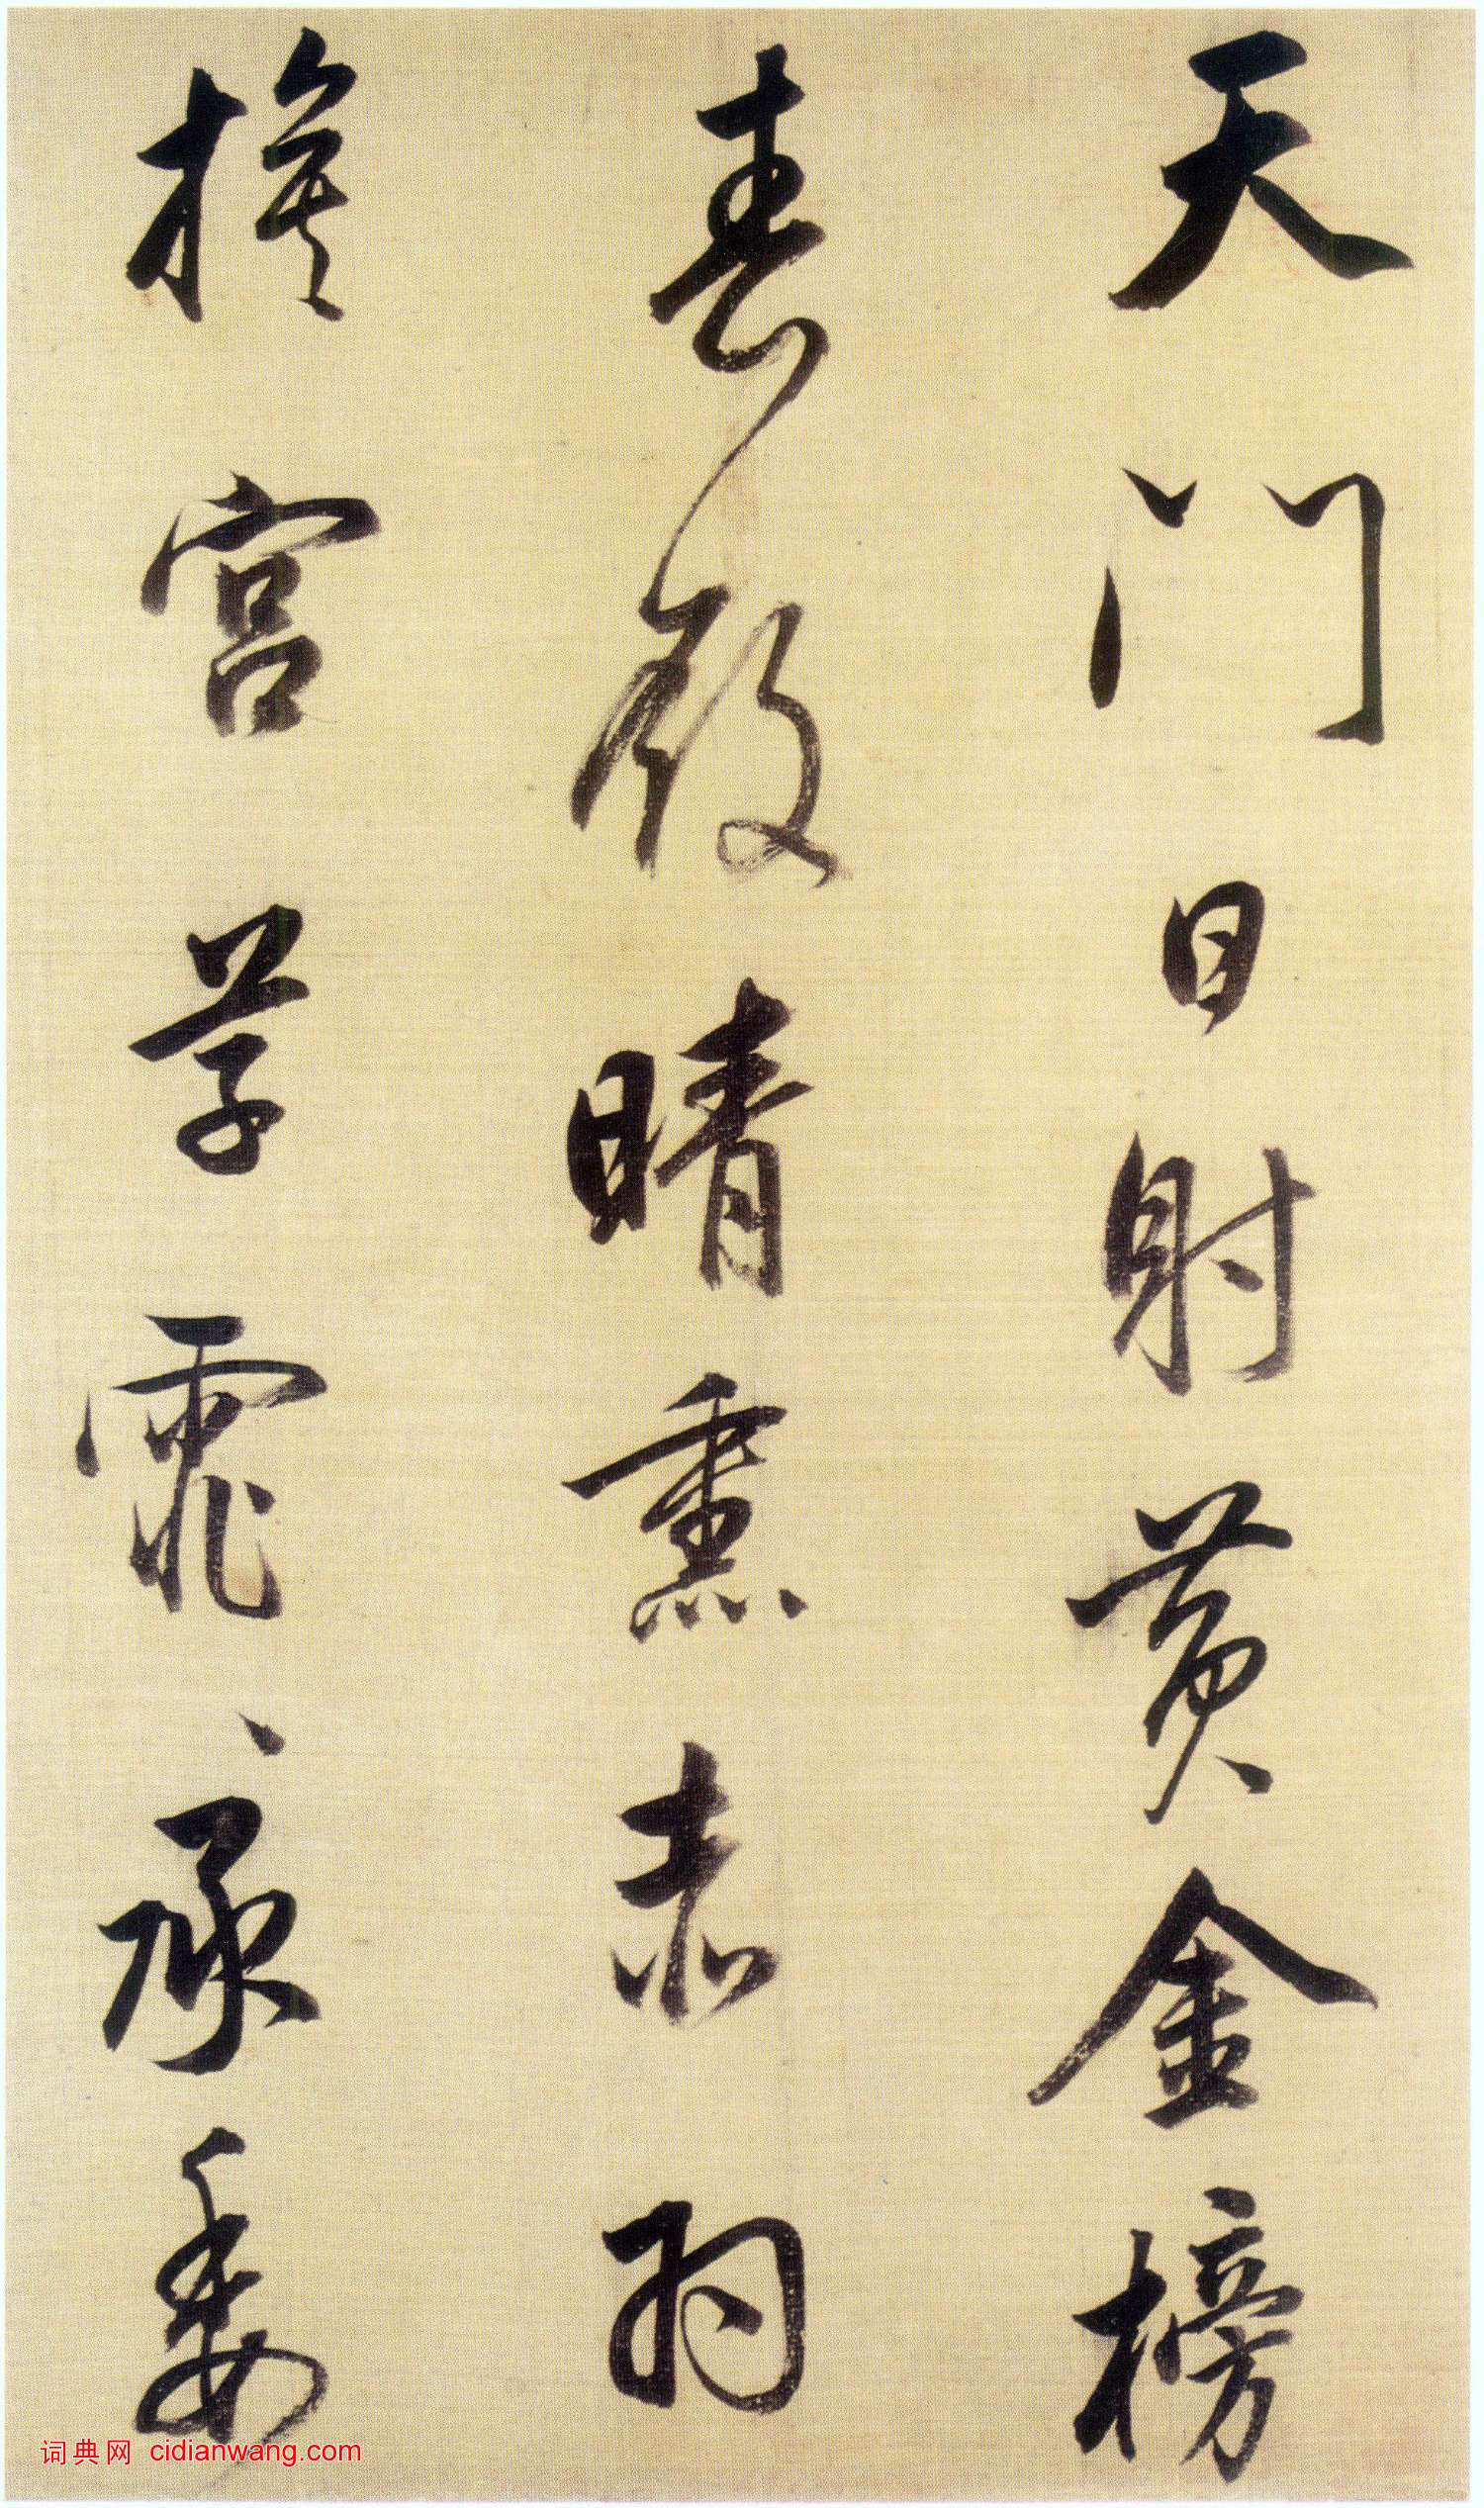 天門日射黃金榜
春殿晴熏赤羽
旗宮草霏、承委
词典网 cidianwang.com